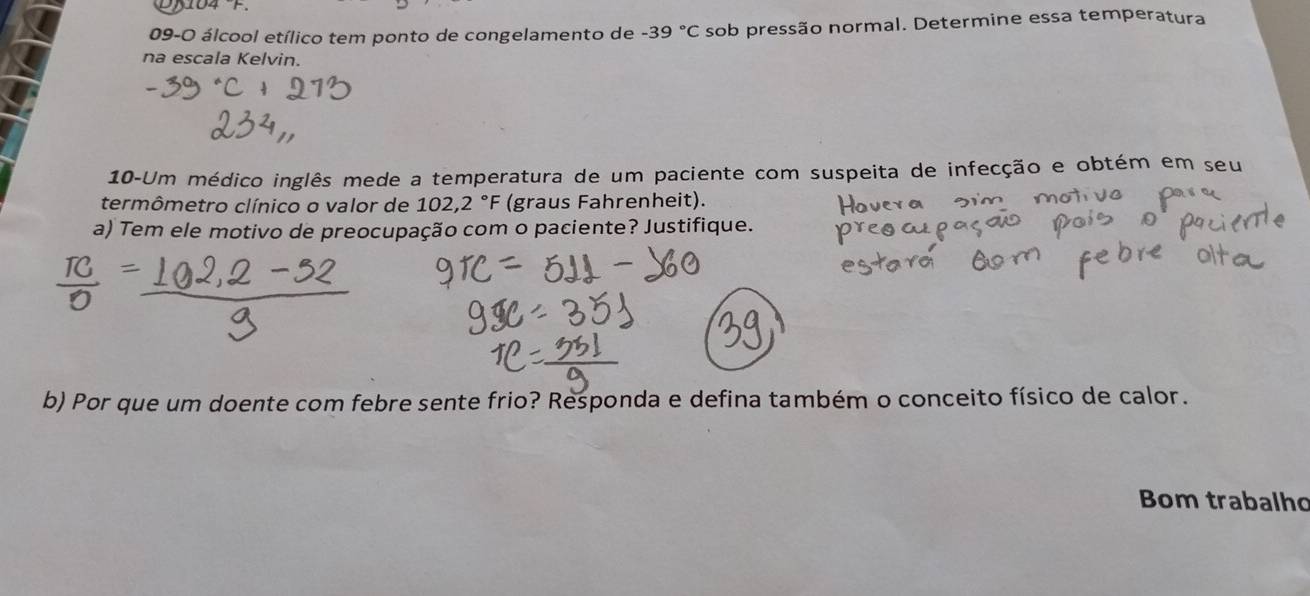 D) 104 °F.
09-O álcool etílico tem ponto de congelamento de -39 °C sob pressão normal. Determine essa temperatura
na escala Kelvin.
-39 °C + 273
234,,
10-Um médico inglês mede a temperatura de um paciente com suspeita de infecção e obtém em seu
termômetro clínico o valor de 102,2 °F (graus Fahrenheit).
a) Tem ele motivo de preocupação com o paciente? Justifique.
Havera sim motivo para
preocupação pois o paciente
estará com febre alta
TC/5 = 102,2 - 32/9
9TC = 511 - 160
9TC = 351
TC = 351/9
39,,
b) Por que um doente com febre sente frio? Responda e defina também o conceito físico de calor.
Bom trabalho